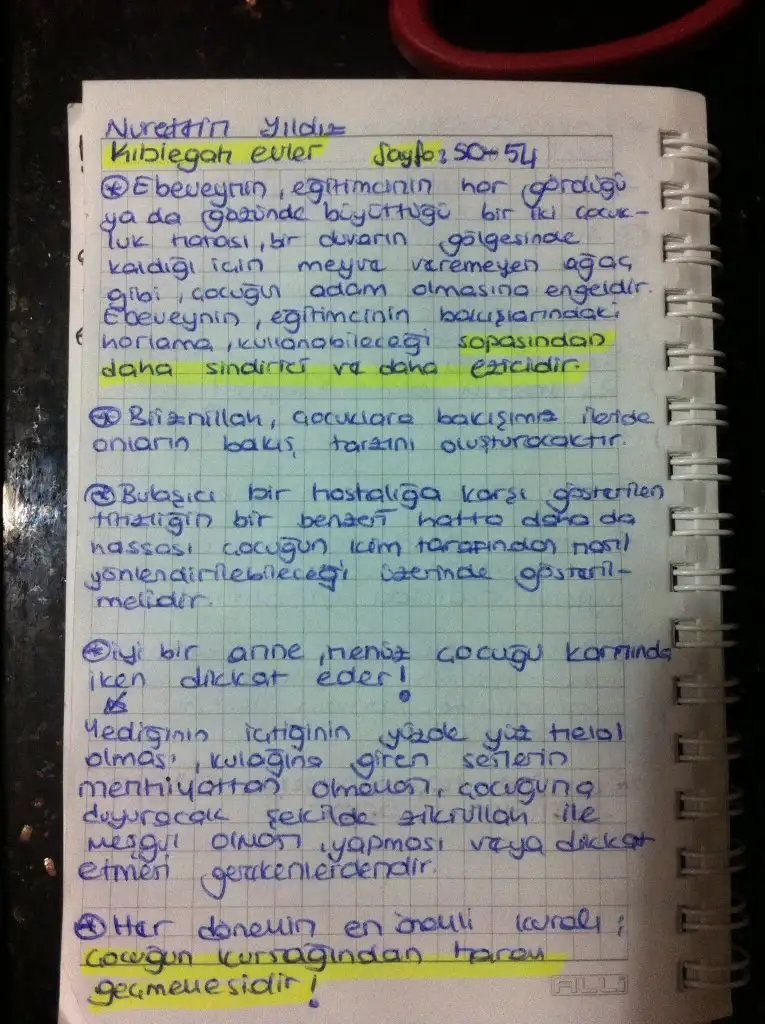 Nurettin Yıldız
Kıblegah evler Sayfa: 50-54
Ebeveynin, eğitimcinin hor gördüğü
ya da gözünde büyüttüğü bir iki çocuk-
luk hatası, bir duvarın gölgesinde
kaldığı için meyve veremeyen ağaç
gibi, çocuğun adam olmasına engeldir.
Ebeveynin, eğitimcinin bakışlarındaki
horlama, kullanabileceği sopasından
daha sindirici ve daha ezicidir.
Biiznillah, çocuklara bakışımız ileride
onların bakış tarzını oluşturacaktır.
Bulaşıcı bir hastalığa karşı gösterilen
titizliğin bir benzeri hatta daha da
hassası çocuğun kim tarafından nasıl
yönlendirilebileceği üzerinde gösteril-
melidir.
iyi bir anne, henüz çocuğu karnında
iken dikkat eder!
Yediğinin içtiğinin yüzde yüz helal
olması, kulağına giren seslerin
menhiyattan olmaması, çocuğuna
duyuracak şekilde zikrullah ile
meşgul olması, yapması veya dikkat
etmesi gerekenlerdendir.
Her dönemin en önemli kuralı;
çocuğun kursağından haram
geçmemesidir!
ALLI